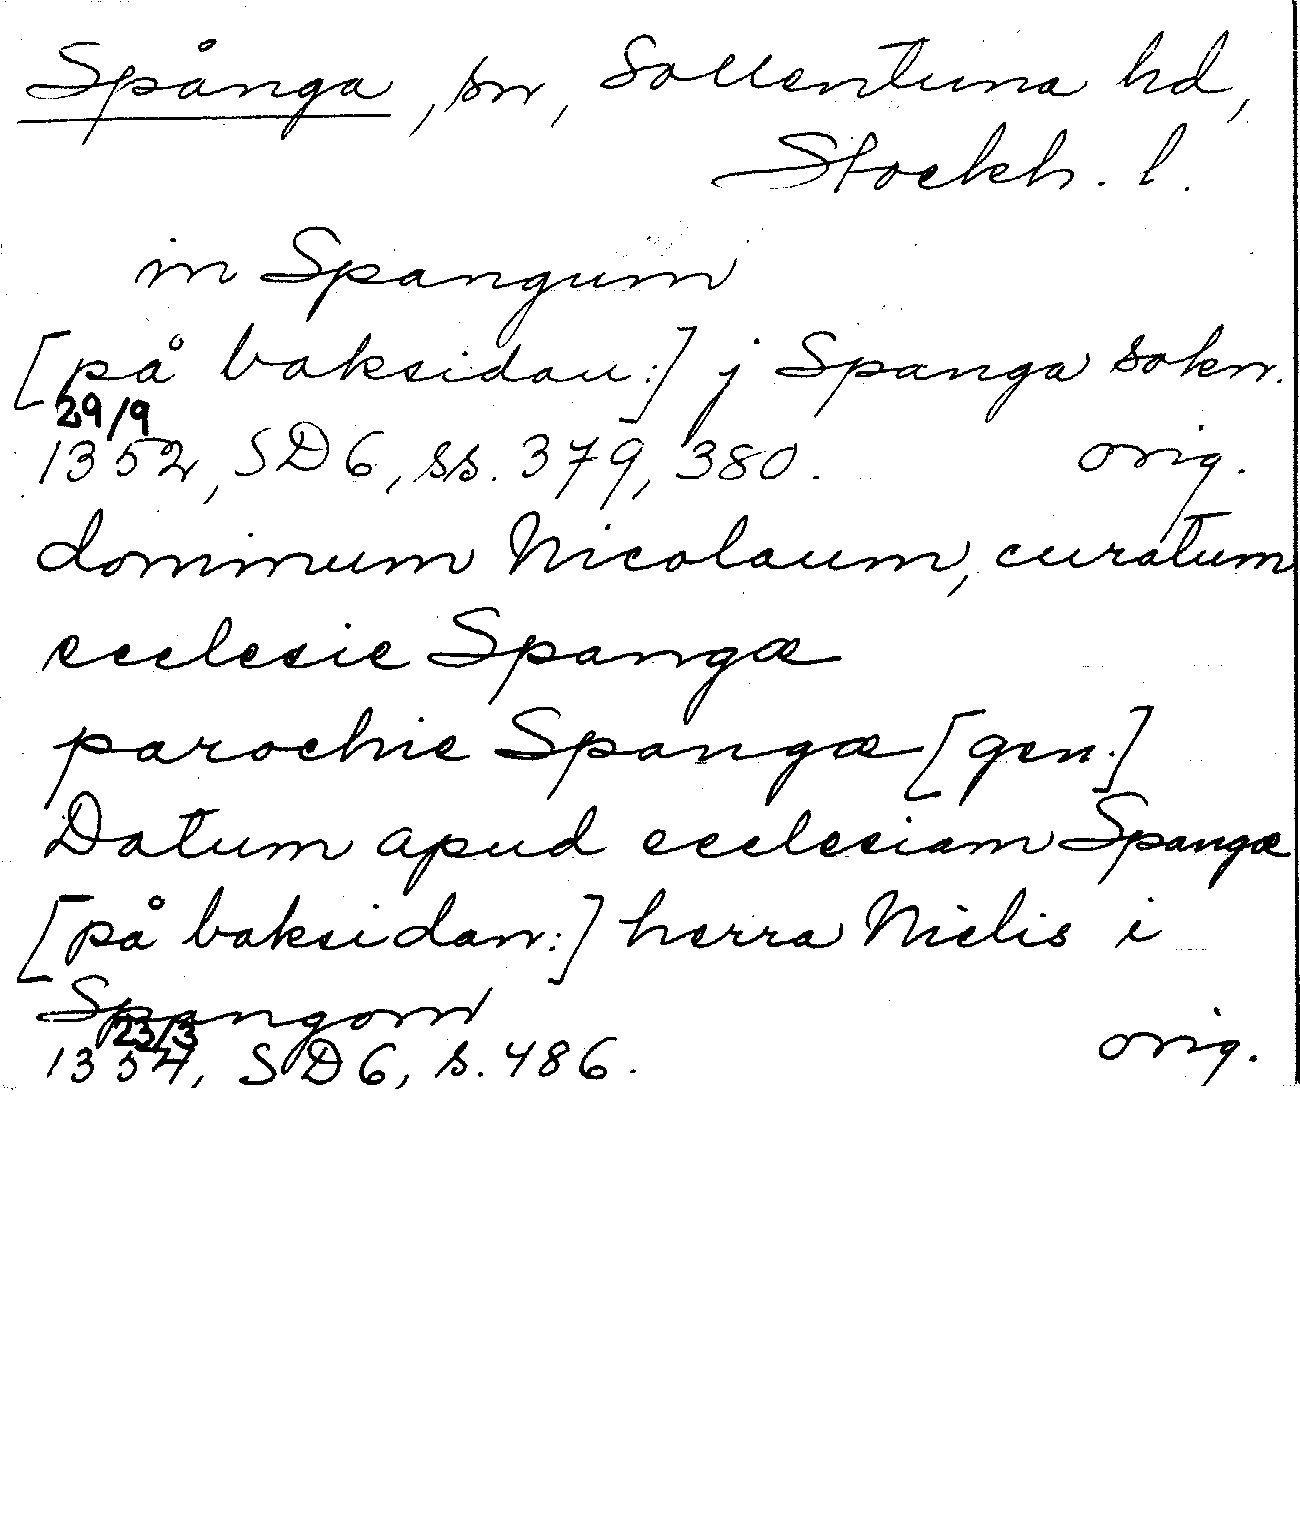 Spånga, sn, Sollentuna hd,
Stockh. l.
in Spangum
[på baksidan:] j Spanga sokn.
29/9
1352, SD 6, ss. 379, 380. orig.
dominum Nicolaum, curatum
ecclesie Spangæ
parochie Spangæ [gen.]
Datum apud ecclesiam Spangæ
[på baksidan:] herra Nielis i
Spangom
23/3
1354, SD 6, s. 486. orig.